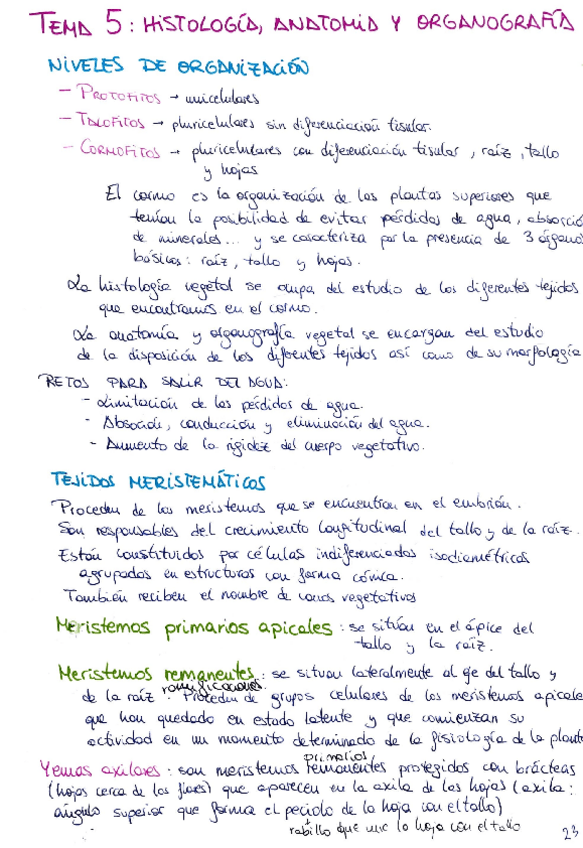 TEMA 5: HISTOLOGÍA, ANATOMIA Y ORGANOGRAFÍA
NIVELES DE ORGANIZACIÓN
- PROTOFITOS → unicelulares
- TALOFITOS → pluricelulares sin diferenciación tisular.
- CORMOFITOS → pluricelulares con diferenciación tisular, raíz, tallo
y hojas
El cormo es la organización de las plantas superiores que
tenían la posibilidad de evitar pérdidas de agua, absorció
de minerales... y se caracteriza por la presencia de 3 órgano
básicos: raíz, tallo y hojas.
La histología vegetal se ocupa del estudio de los diferentes tejidos
que encontramos en el cormo.
La anatomía y organografía vegetal se encargan del estudio
de la disposición de los diferentes tejidos así como de su morfología
RETOS PARA SALIR DEL AGUA:
- Limitación de las pérdidas de agua.
- Absorción, conducción y eliminación del agua.
- Aumento de la rigidez del cuerpo vegetativo.
TEJIDOS MERISTEMÁTICOS
Proceden de los meristemos que se encuentran en el embrión.
Son responsables del crecimiento longitudinal del tallo y de la raíz.
Están constituidos por células indiferenciadas isodiamétricas
agrupadas en estructuras con forma cónica.
También reciben el nombre de conos vegetativos
Meristemos primarios apicales: se sitúan en el ápice del
tallo y la raíz.
Meristemos remanentes: se situan lateralmente al eje del tallo y
ramificaciones.
de la raíz. Proceden de grupos celulares de los meristemos apicale
que han quedado en estado latente y que comienzan su
actividad en un momento determinado de la fisiología de la plant
primarios
Yemas axilares: son meristemos remanentes protegidos con brácteas
(hojas cerca de las flores) que aparecen en la axila de las hojas (axila:
ángulo superior que forma el peciolo de la hoja con el tallo)
rabillo que une la hoja con el tallo
23